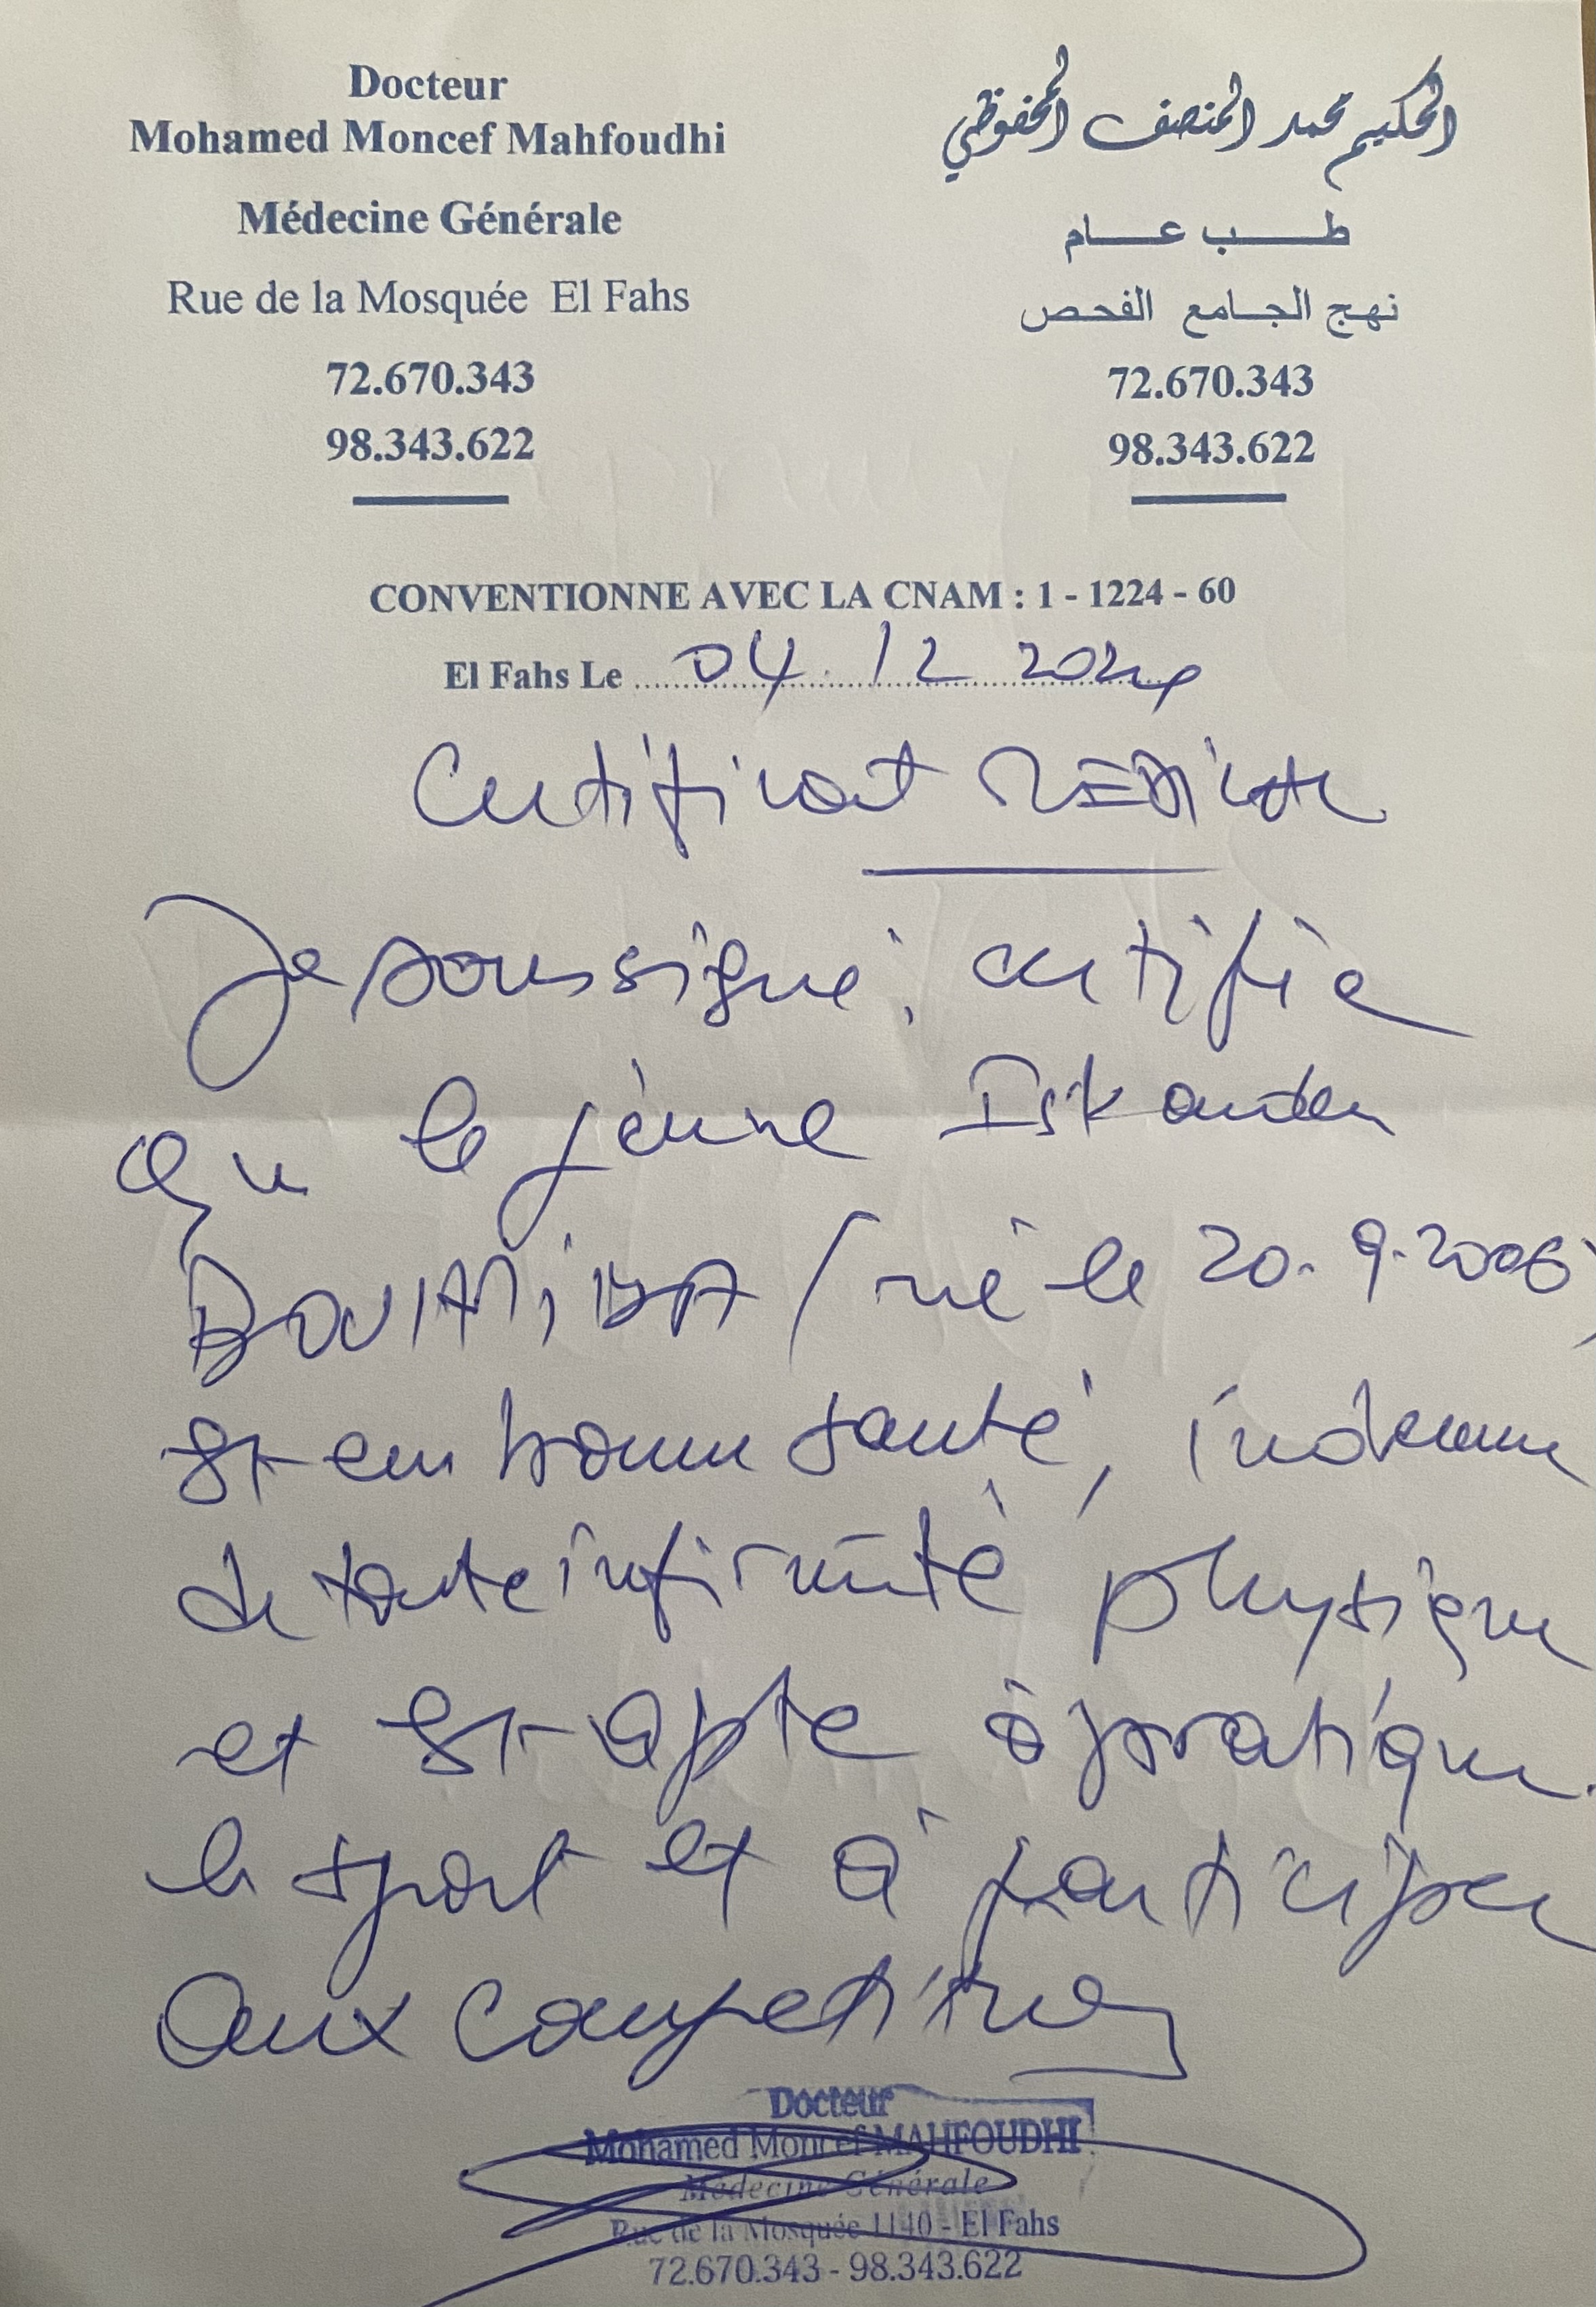 Docteur
Mohamed Moncef Mahfoudhi
Médecine Générale
Rue de la Mosquée El Fahs
72.670.343
98.343.622
الحكيم محمد المنصف المحفوظي
طب عام
نهج الجامع الفحص
72.670.343
98.343.622
CONVENTIONNE AVEC LA CNAM : 1 - 1224 - 60
El Fahs Le 04. 12 2024
Certificat MEDicale
Je soussigné, certifie
que le jeune Iskander
(né le 20. 9. 2006)
est en bonne santé, indemne
de toute infirmité physique
et est apte à pratiquer
le sport et à participer
aux competitions
Docteur
Mohamed Moncef MAHFOUDHI
Médecine Générale
Rue de la Mosquée 1140 - El Fahs
72.670.343 - 98.343.622